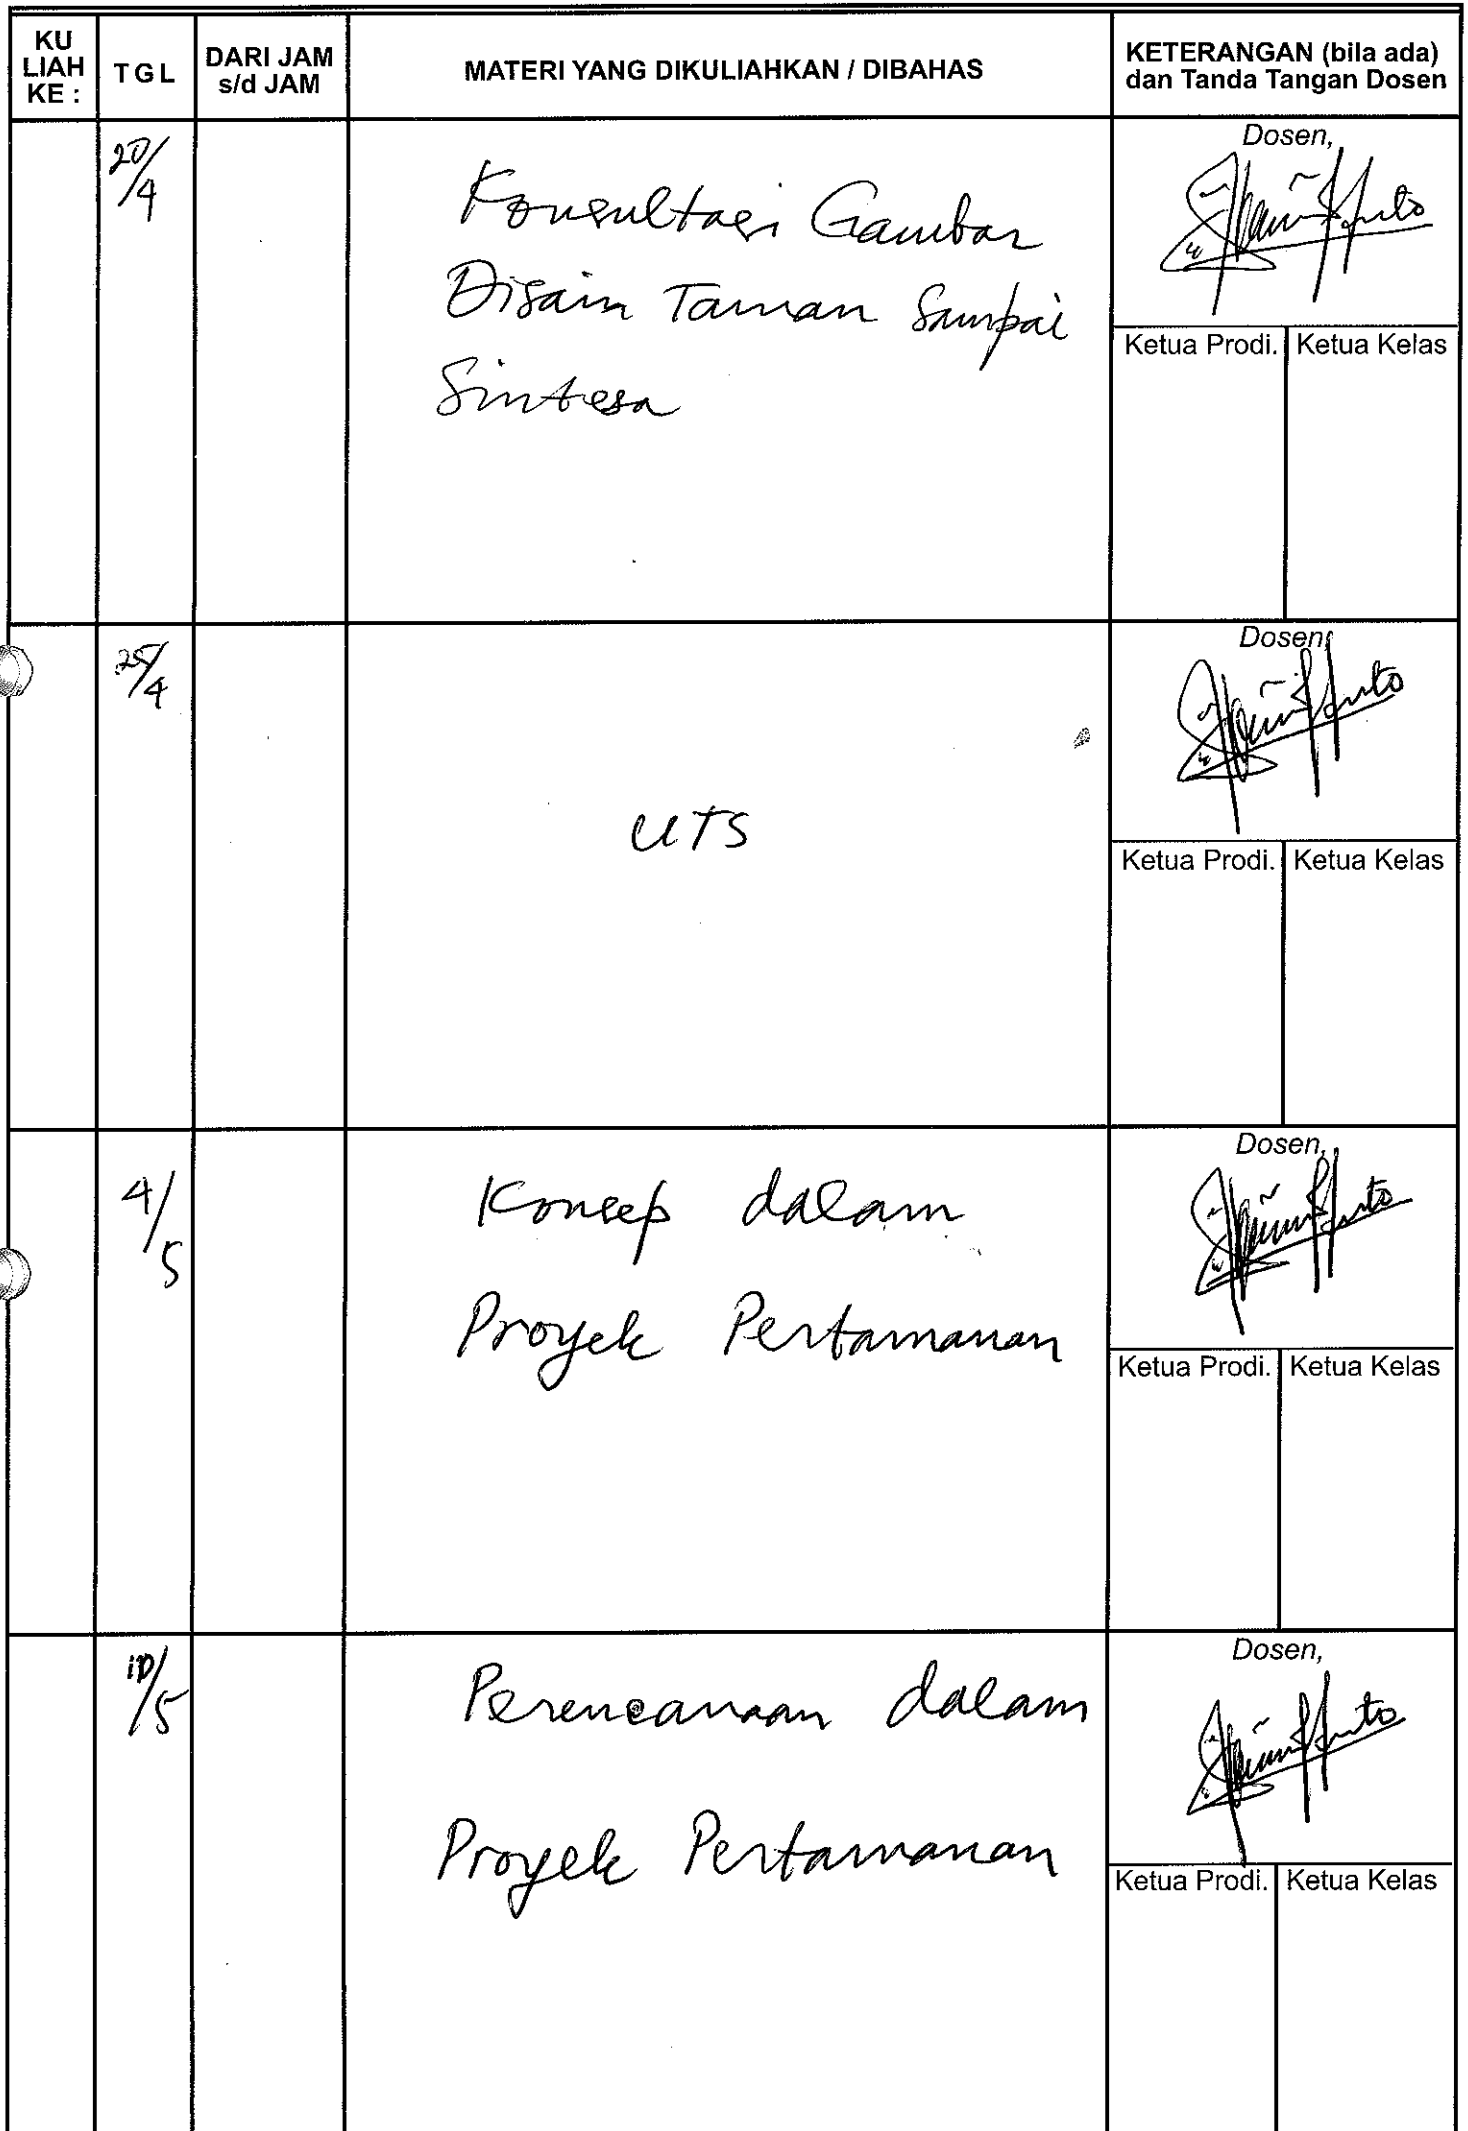 KU
LIAH
KE :
TGL
DARI JAM
s/d JAM
MATERI YANG DIKULIAHKAN / DIBAHAS
KETERANGAN (bila ada)
dan Tanda Tangan Dosen
20/4
Konsultasi Gambar
Disain Taman Sampai
Sintesa
Dosen,
Ketua Prodi. Ketua Kelas
25/4
UTS
Dosen,
Ketua Prodi. Ketua Kelas
4/5
Konsep dalam
Proyek Pertamanan
Dosen,
Ketua Prodi. Ketua Kelas
10/5
Perencanaan dalam
Proyek Pertamanan
Dosen,
Ketua Prodi. Ketua Kelas